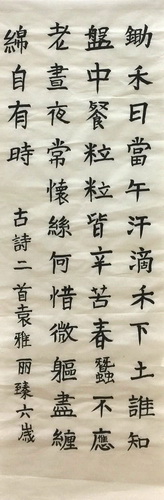 鋤禾日當午汗滴禾下土誰知
盤中餐粒粒皆辛苦春蠶不應
老晝夜常懷絲何惜微軀盡纏
綿自有時
古詩二首袁雅麗臻六歲